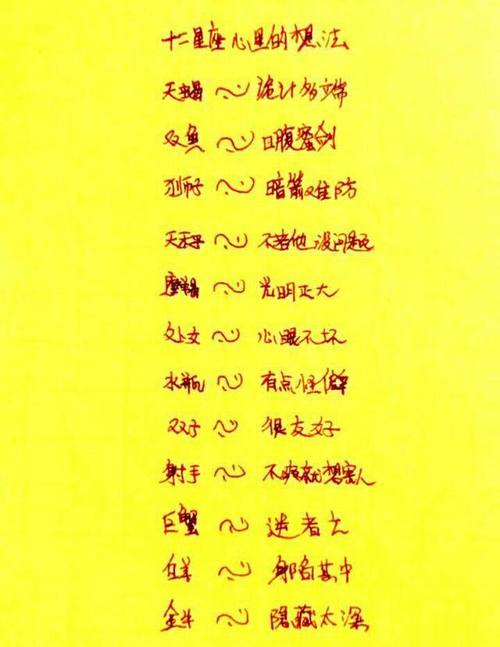 十二星座心里的想法
天蝎~诡计多端
双鱼~口腹蜜剑
狮子~暗箭难防
天平~不若他没问题
摩羯~光明正大
处女~心眼不坏
水瓶~有点怪僻
双子~很友好
射手~不爽就想害人
巨蟹~逆者亡
白羊~身陷其中
金牛~隐藏太深